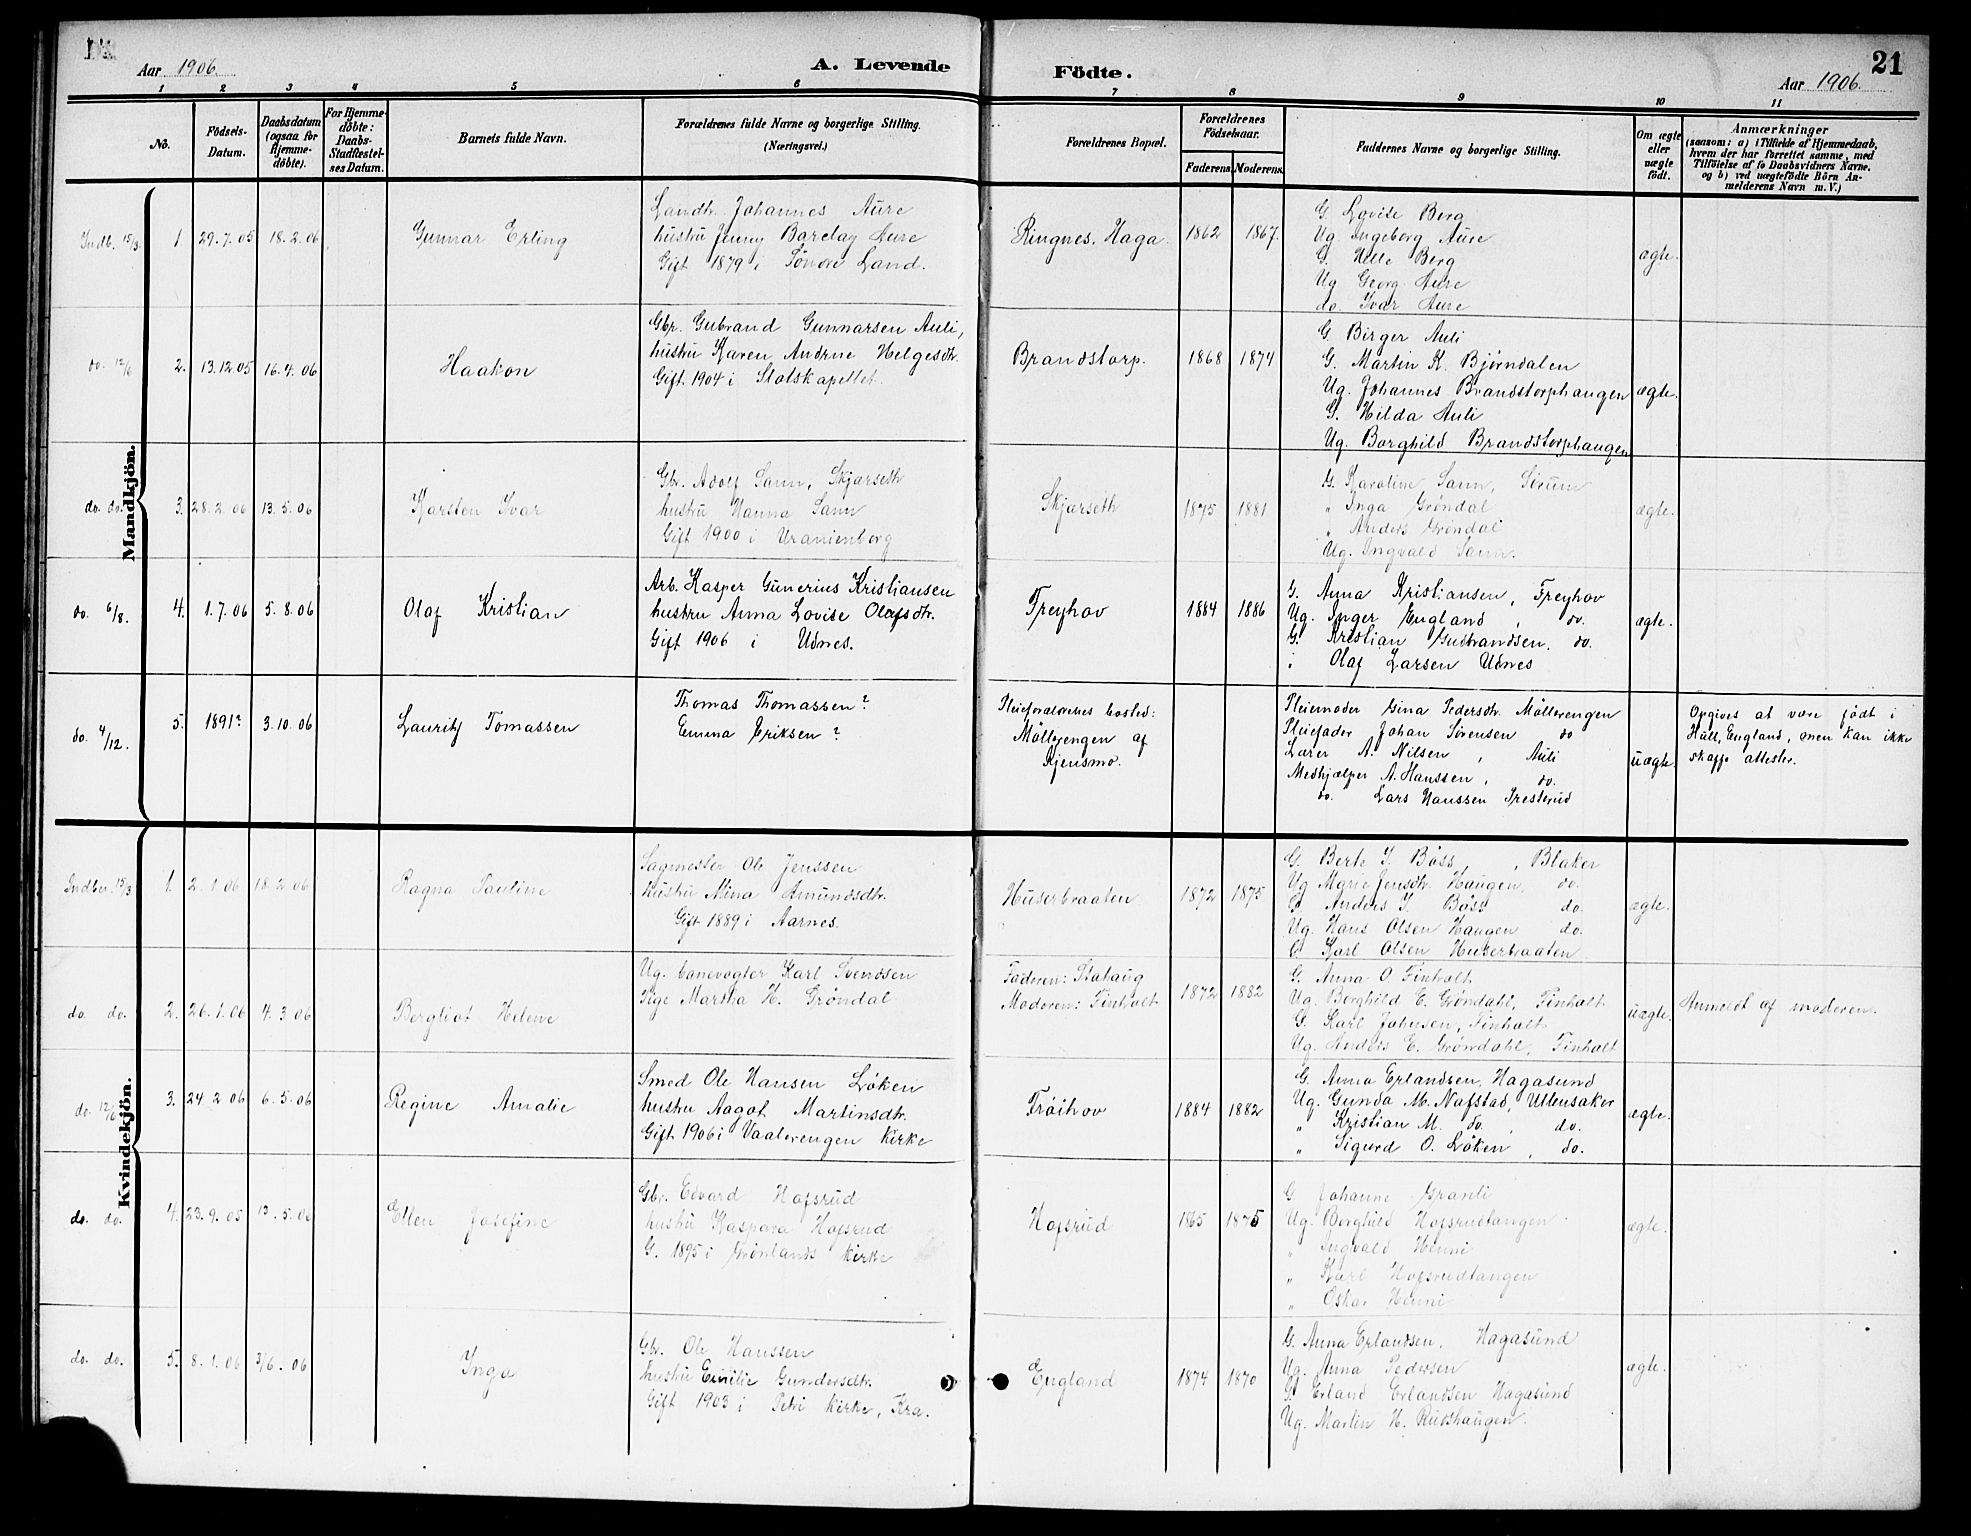 Aar 1906.
A. Levende
Födte.
21
Aar 1906.
1 2 3 4 5 6 7 8 9 10 11
No.
Födsels-Datum.
Daabsdatum (ogsaa for Hjemme-döbte).
For Hjemme-döbte: Daabs-Stadfæstel-ses Datum.
Barnets fulde Navn.
Forældrenes fulde Navne og borgerlige Stilling.
(Næringsvei.)
Forældrenes Bopæl.
Forældrenes Födselsaar.
Faderens. Moderens.
Faddernes Navne og borgerlige Stilling.
Om ægte eller uægte födt.
Anmærkninger
(saasom: a) i Tilfælde af Hjemmedaab,
hvem der har forrettet samme, med
Tilföielse af to Daabsvidners Navne.
og b) ved uægtefödte Börn An-
melderens Navn m. V.)
Mandkjön.
Indb. 15/3. 1. 29.7.05 18.2.06 Gunnar Erling
Landh. Johannes Aure
hustru Jenny Barclay Aure
Gift 1879 i Söndre Land.
Ringnes, Haga. 1862 1867.
G. Lovise Berg
Ug. Ingeborg Aure
G. Helle Berg
Ug. Georg Aure
do. Ivar Aure
ægte.
do. 12/6 2. 13.12.05 16.4.06 Haakon
Gbr. Gubrand Gunnarsen Auli,
hustru Karen Andrne Helgesdtr.
Gift 1904 i Slotskapellet.
Brandstorp. 1868 1874
G. Birger Auli
G. Martin K. Bjørndalen
Ug. Johannes Brandstorphaugen
G. Hilda Auli
Ug. Borghild Brandstorphaugen
ægte.
do. do. 3. 28.2.06 13.5.06 Karsten Ivar
Gbr. Adolf Sann, Skjærseth
hustru Hanna Sann
Gift 1900 i Uranienborg
Skjærseth 1875 1881
G. Karoline Sann, Sørum
" Inga Grøndal
" Anders Grøndal
Ug. Ingvald Sann.
ægte.
do. 6/8. 4. 1.7.06 5.8.06 Olaf Kristian
Arb. Kasper Gunerius Kristiansen
hustru Anna Lovise Olafsdtr.
Gift 1906 i Udnes.
Freyhov 1884 1886
G. Anna Kristiansen, Freyhov
Ug. Inger England, do.
G. Kristian Gudbrandsen, do.
" Olaf Larsen Udnes
ægte.
do. 4/12. 5. 1891? 3.10.06 Lauritz Tomassen
Thomas Thomassen?
Emma Eriksen?
Pleieforældrenes bosted:
Møllerengen af
Kjensmo.
Pleiemoder Gina Pedersdtr. Møllerengen
Pleiefader Johan Sørensen do
Lærer A. Nilsen, Auli
Medhjælper A. Hanssen, do.
do. Lars Hanssen Presterud
uægte.
Opgives at være født i
Hull, England, men kan ikke
skaffe attester.
Kvindekjön.
Indber. 15/3 1. 2.1.06 18.2.06 Ragna Pauline
Sagmester Ole Jenssen
hustru Mina Amundsdtr.
Gift 1889 i Aarnes.
Huserbraaten 1872 1875
G. Berte J. Bøss, Blaker
Ug Marie Jensdtr. Haugen, do.
G. Anders J. Bøss do.
Ug. Hans Olsen Haugen do.
G. Karl Olsen Huserbraaten
ægte.
do. do. 2. 26.1.06 4.3.06 Bergliot Helene
Ug. banevogter Karl Svendsen
Pige Martha H. Grøndal
Faderen: Stahaug
Moderen: Finholt 1872 1882
G. Anna O. Finholt
Ug. Borghild E. Grøndahl, Finholt
G. Karl Johnsen, Finholt
Ug. Anders E. Grøndahl, Finholt
uægte. Anmeldt af moderen.
do. 12/6 3. 24.2.06 6.5.06 Regine Amalie
Smed Ole Hansen Løken
hustru Aagot Martinsdtr.
Gift 1906 i Vaalerengen kirke
Frøihov 1884 1882
G. Anna Erlandsen, Hagasund
Ug. Gunda M. Nafstad, Ullensaker
" Kristian M. do., do.
" Sigurd O. Løken, do.
ægte.
do. do. 4. 23.9.05 13.5.06 Ellen Josefine
Gbr. Edvard Hofsrud
hustru Kaspara Hofsrud
G. 1895 i Grønlands kirke
Hofsrud 1865 1875
G. Johanne Granli
Ug. Borghild Hofsrudtangen
" Ingvald Henni
" Karl Hofsrudtangen
" Oskar Henni
ægte.
do. do. 5. 8.1.06 3/6.06 Inga
Gbr. Ole Hanssen
hustru Emilie Gundersdtr.
Gift 1903 i Petri kirke, Kra.
England 1874 1870
G. Anna Erlandsen, Hagasund
Ug. Anna Pedersen
G. Erland Erlandsen Hagasund
Ug. Martin H. Rudshaugen.
ægte.